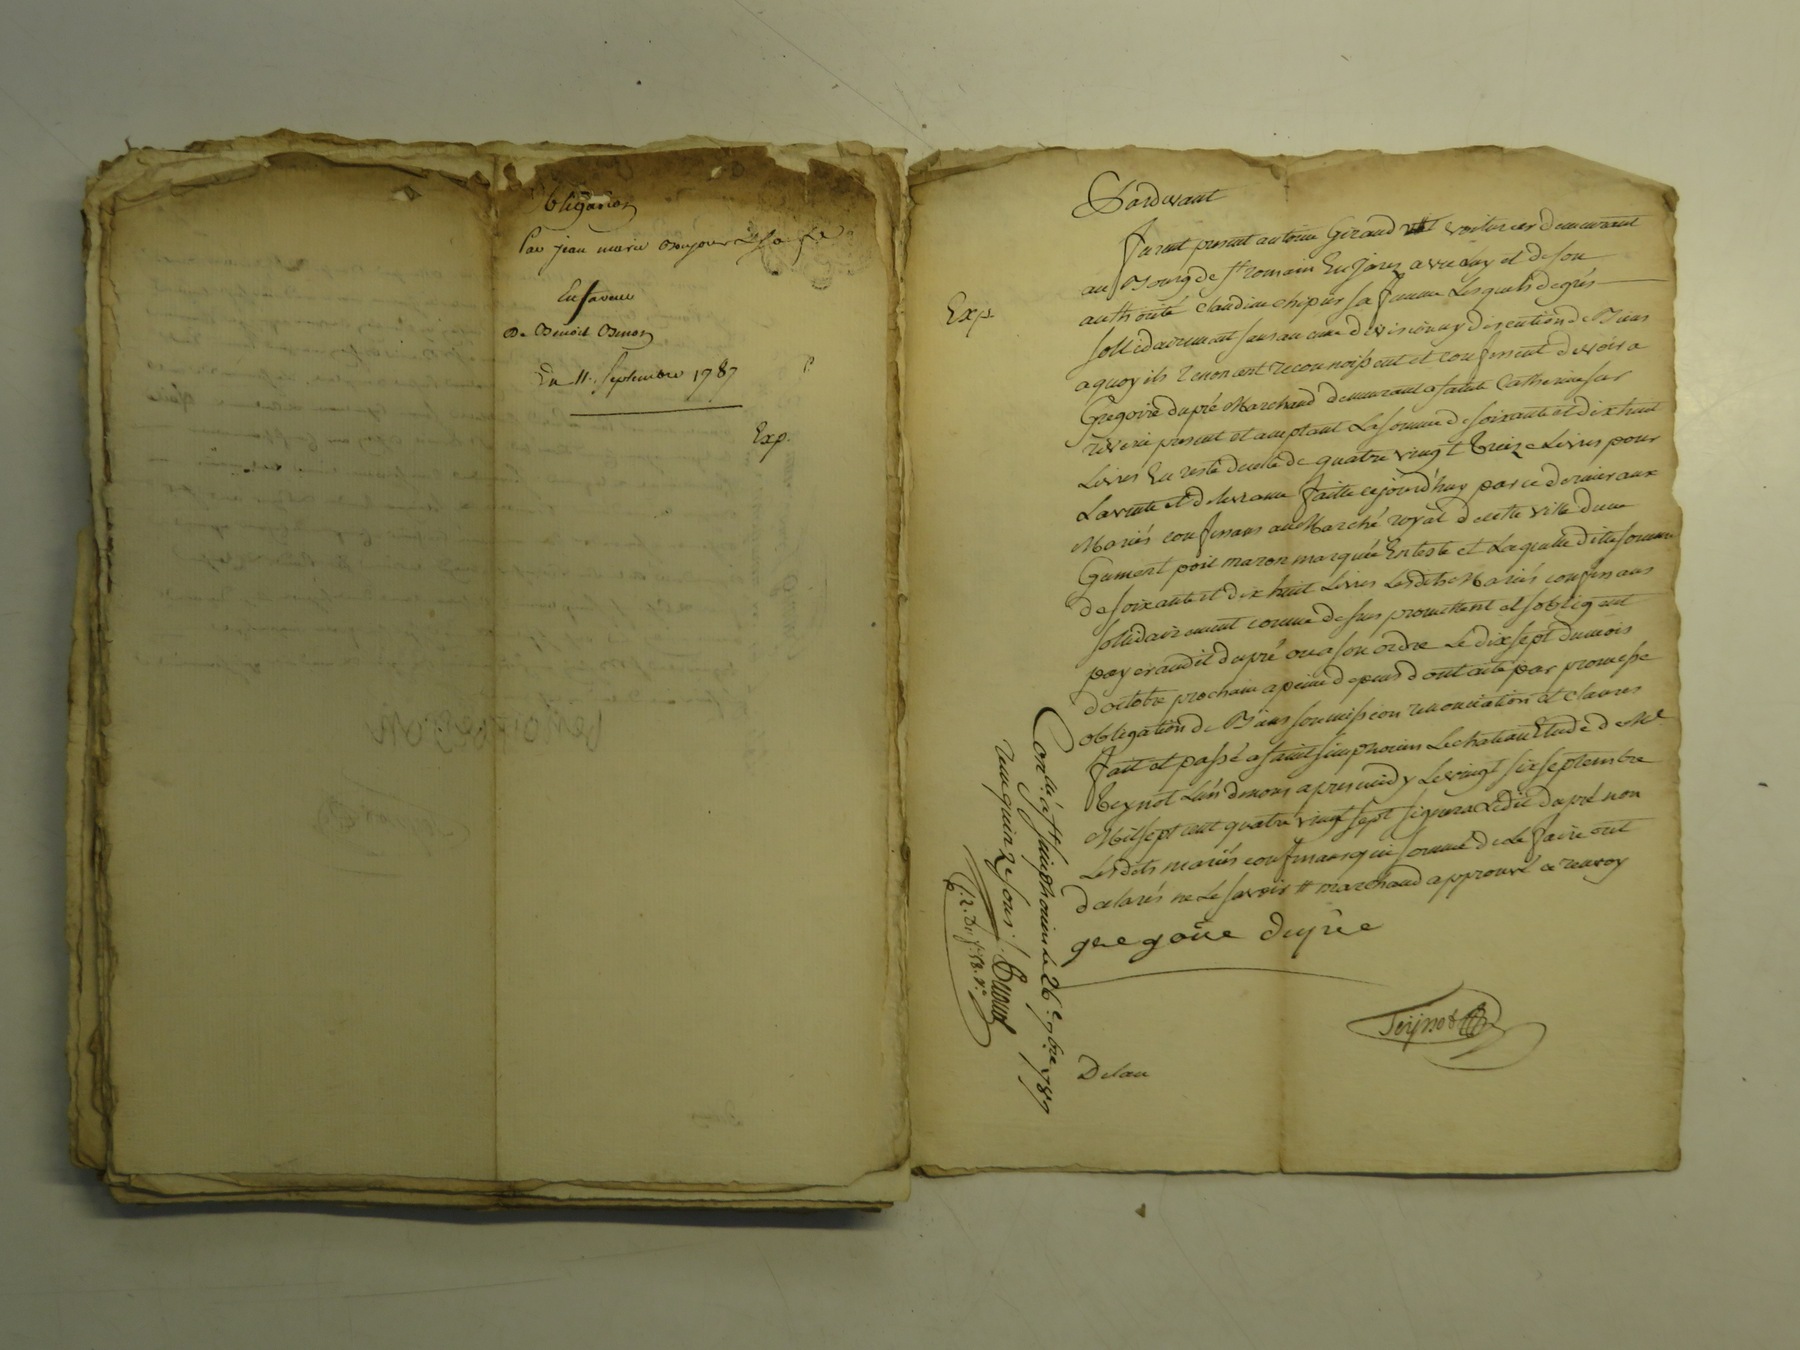 Obligation
Par jean marie Bonjour et sa fe
En faveur
De Benoit Benon
Du 11. Septembre 1787
Exp.
Pardevant
Furent present antoine Giraud voiturier demeurant
au Bourg de st romain En Jarez avec luy et de son
authorité Claudine chipier sa femme Lesquels de grés
sollidairement sans aucune division ny discution de Biens
a quoy ils renoncent reconnoissent et confessent devoir a
Gregoire dupré Marchand demeurant a sainte Catherine sur
riverie present et acceptant La somme de soixante et dix huit
Livres En reste de celle de quatre vingt treize Livres pour
La vente et delivrance faitte cejourd'huy par ce dernier aux
Mariés confessans au Marché royal de cette ville d'une
Jument poil maron marquée En teste et Laquelle ditte somme
de soixante et dix huit Livres Lesdits Mariés confessans
sollidairement comme dessus promettent et s'obligent
payer audit dupré ou a son ordre Le dix sept du mois
d'octobre prochain a peine de depens dont acte par promesse
obligation de Biens soumission renonciation et clauses
fait et passé a saint simphorien Le chateau Etude de Me
Teynot L'un de nous apres midy Le vingt six septembre
Mil sept cent quatre vingt sept signera Ledit dupré non
Lesdits mariés confessans qui sommé de Le faire ont
declarés ne Le savoir # marchand approuvé ce renvoy
gregoire Dupré
Teynot
Delau
Exp.
Conllé a st simphorien Le 26 7bre 1787
reçu quinze sous